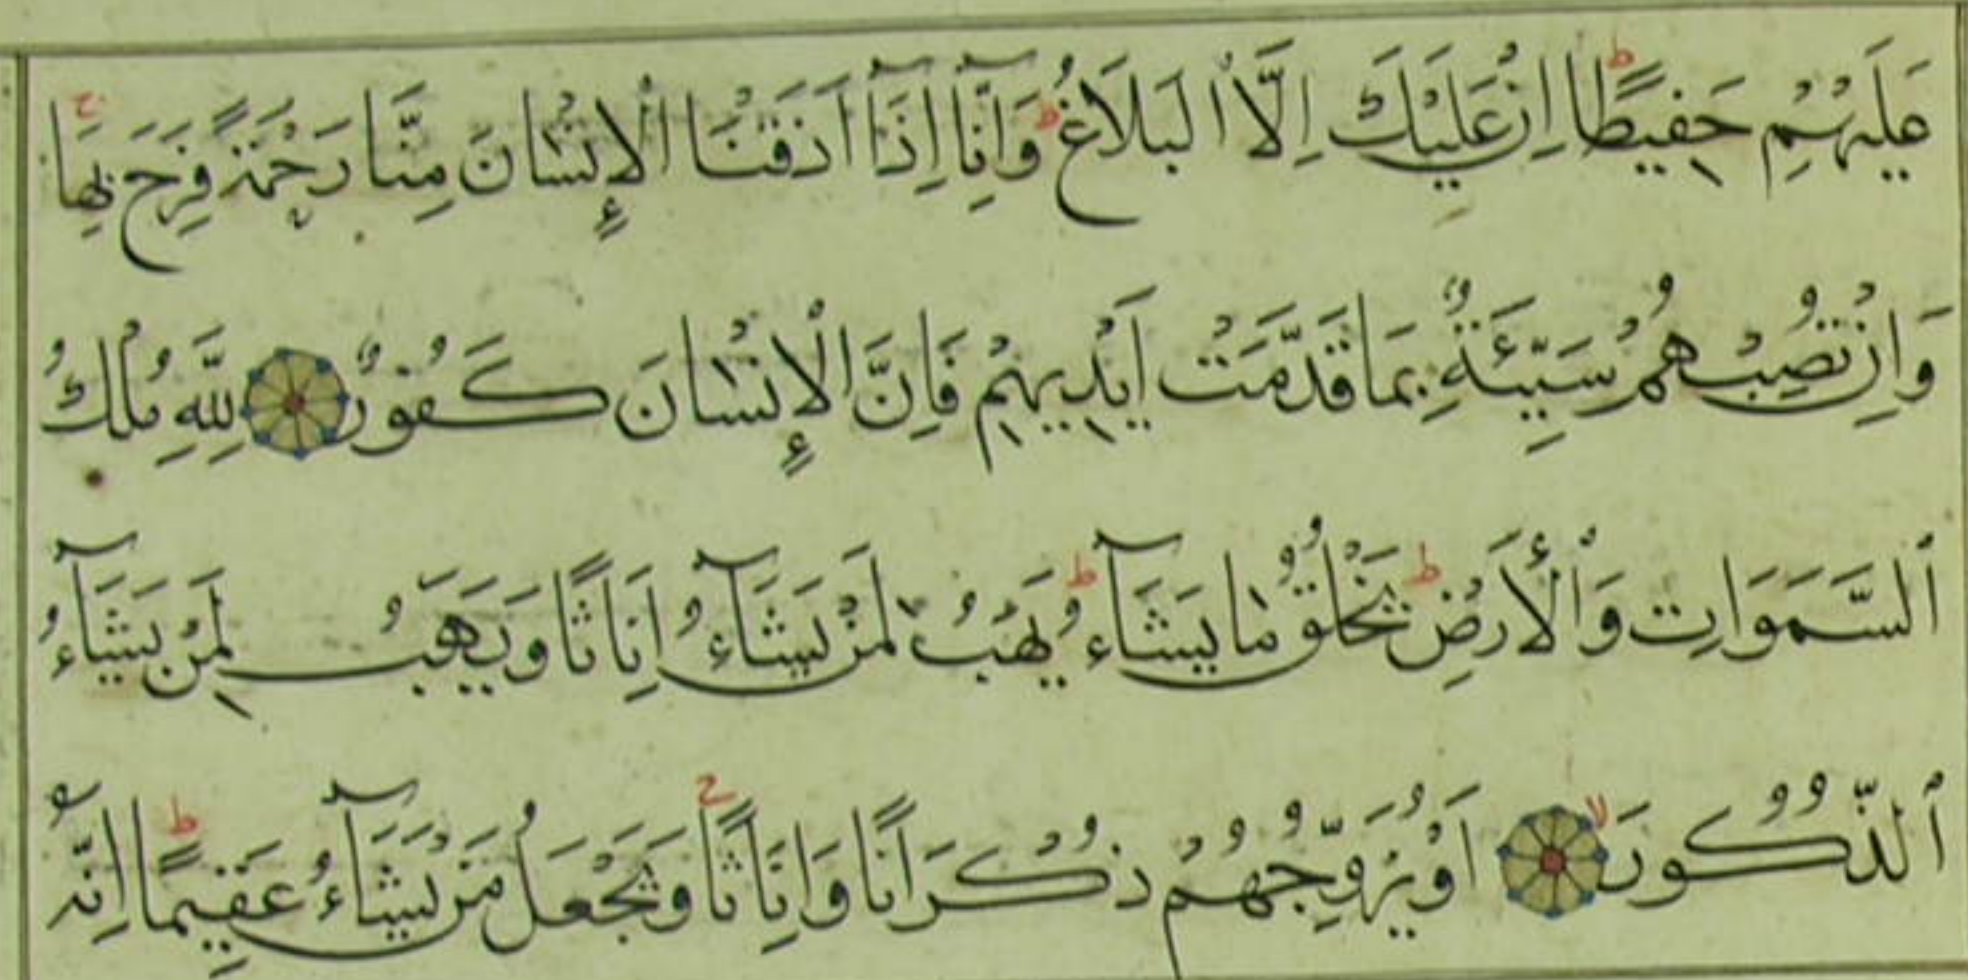 عَلَيْهِمْ حَفِيظًا ط اِنْ عَلَيْكَ اِلَّا الْبَلَاغُ ط وَاِنَّٓا اِذَٓا اَذَقْنَا الْاِنْسَانَ مِنَّا رَحْمَةً فَرِحَ بِهَا ج
وَاِنْ تُصِبْهُمْ سَيِّئَةٌ بِمَا قَدَّمَتْ اَيْدِيهِمْ فَاِنَّ الْاِنْسَانَ كَفُورٌ لِلّٰهِ مُلْكُ
السَّمَوَاتِ وَالْأَرْضِ ط يَخْلُقُ مَا يَشَٓاءُ ط يَهَبُ لِمَنْ يَشَٓاءُ اِنَاثًا وَيَهَبُ لِمَنْ يَشَٓاءُ
الذُّكُورَ لا اَوْ يُزَوِّجُهُمْ ذُكْرَانًا وَاِنَاثًا ج وَيَجْعَلُ مَنْ يَشَٓاءُ عَقِيمًا ط اِنَّهُ